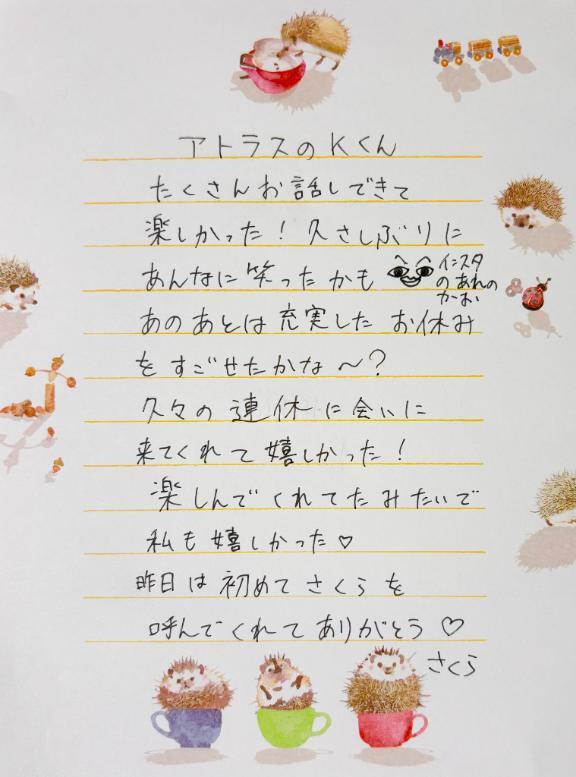 アトラスのKくん
たくさんお話しできて
楽しかった！久さしぶりに
あんなに笑ったかも
インスタ
のあれの
かお
あのあとは充実したお休み
をすごせたかな～？
久々の連休に会いに
来てくれて嬉しかった！
楽しんでくれてたみたいで
私も嬉しかった♡
昨日は初めてさくらを
呼んでくれてありがとう♡
さくら